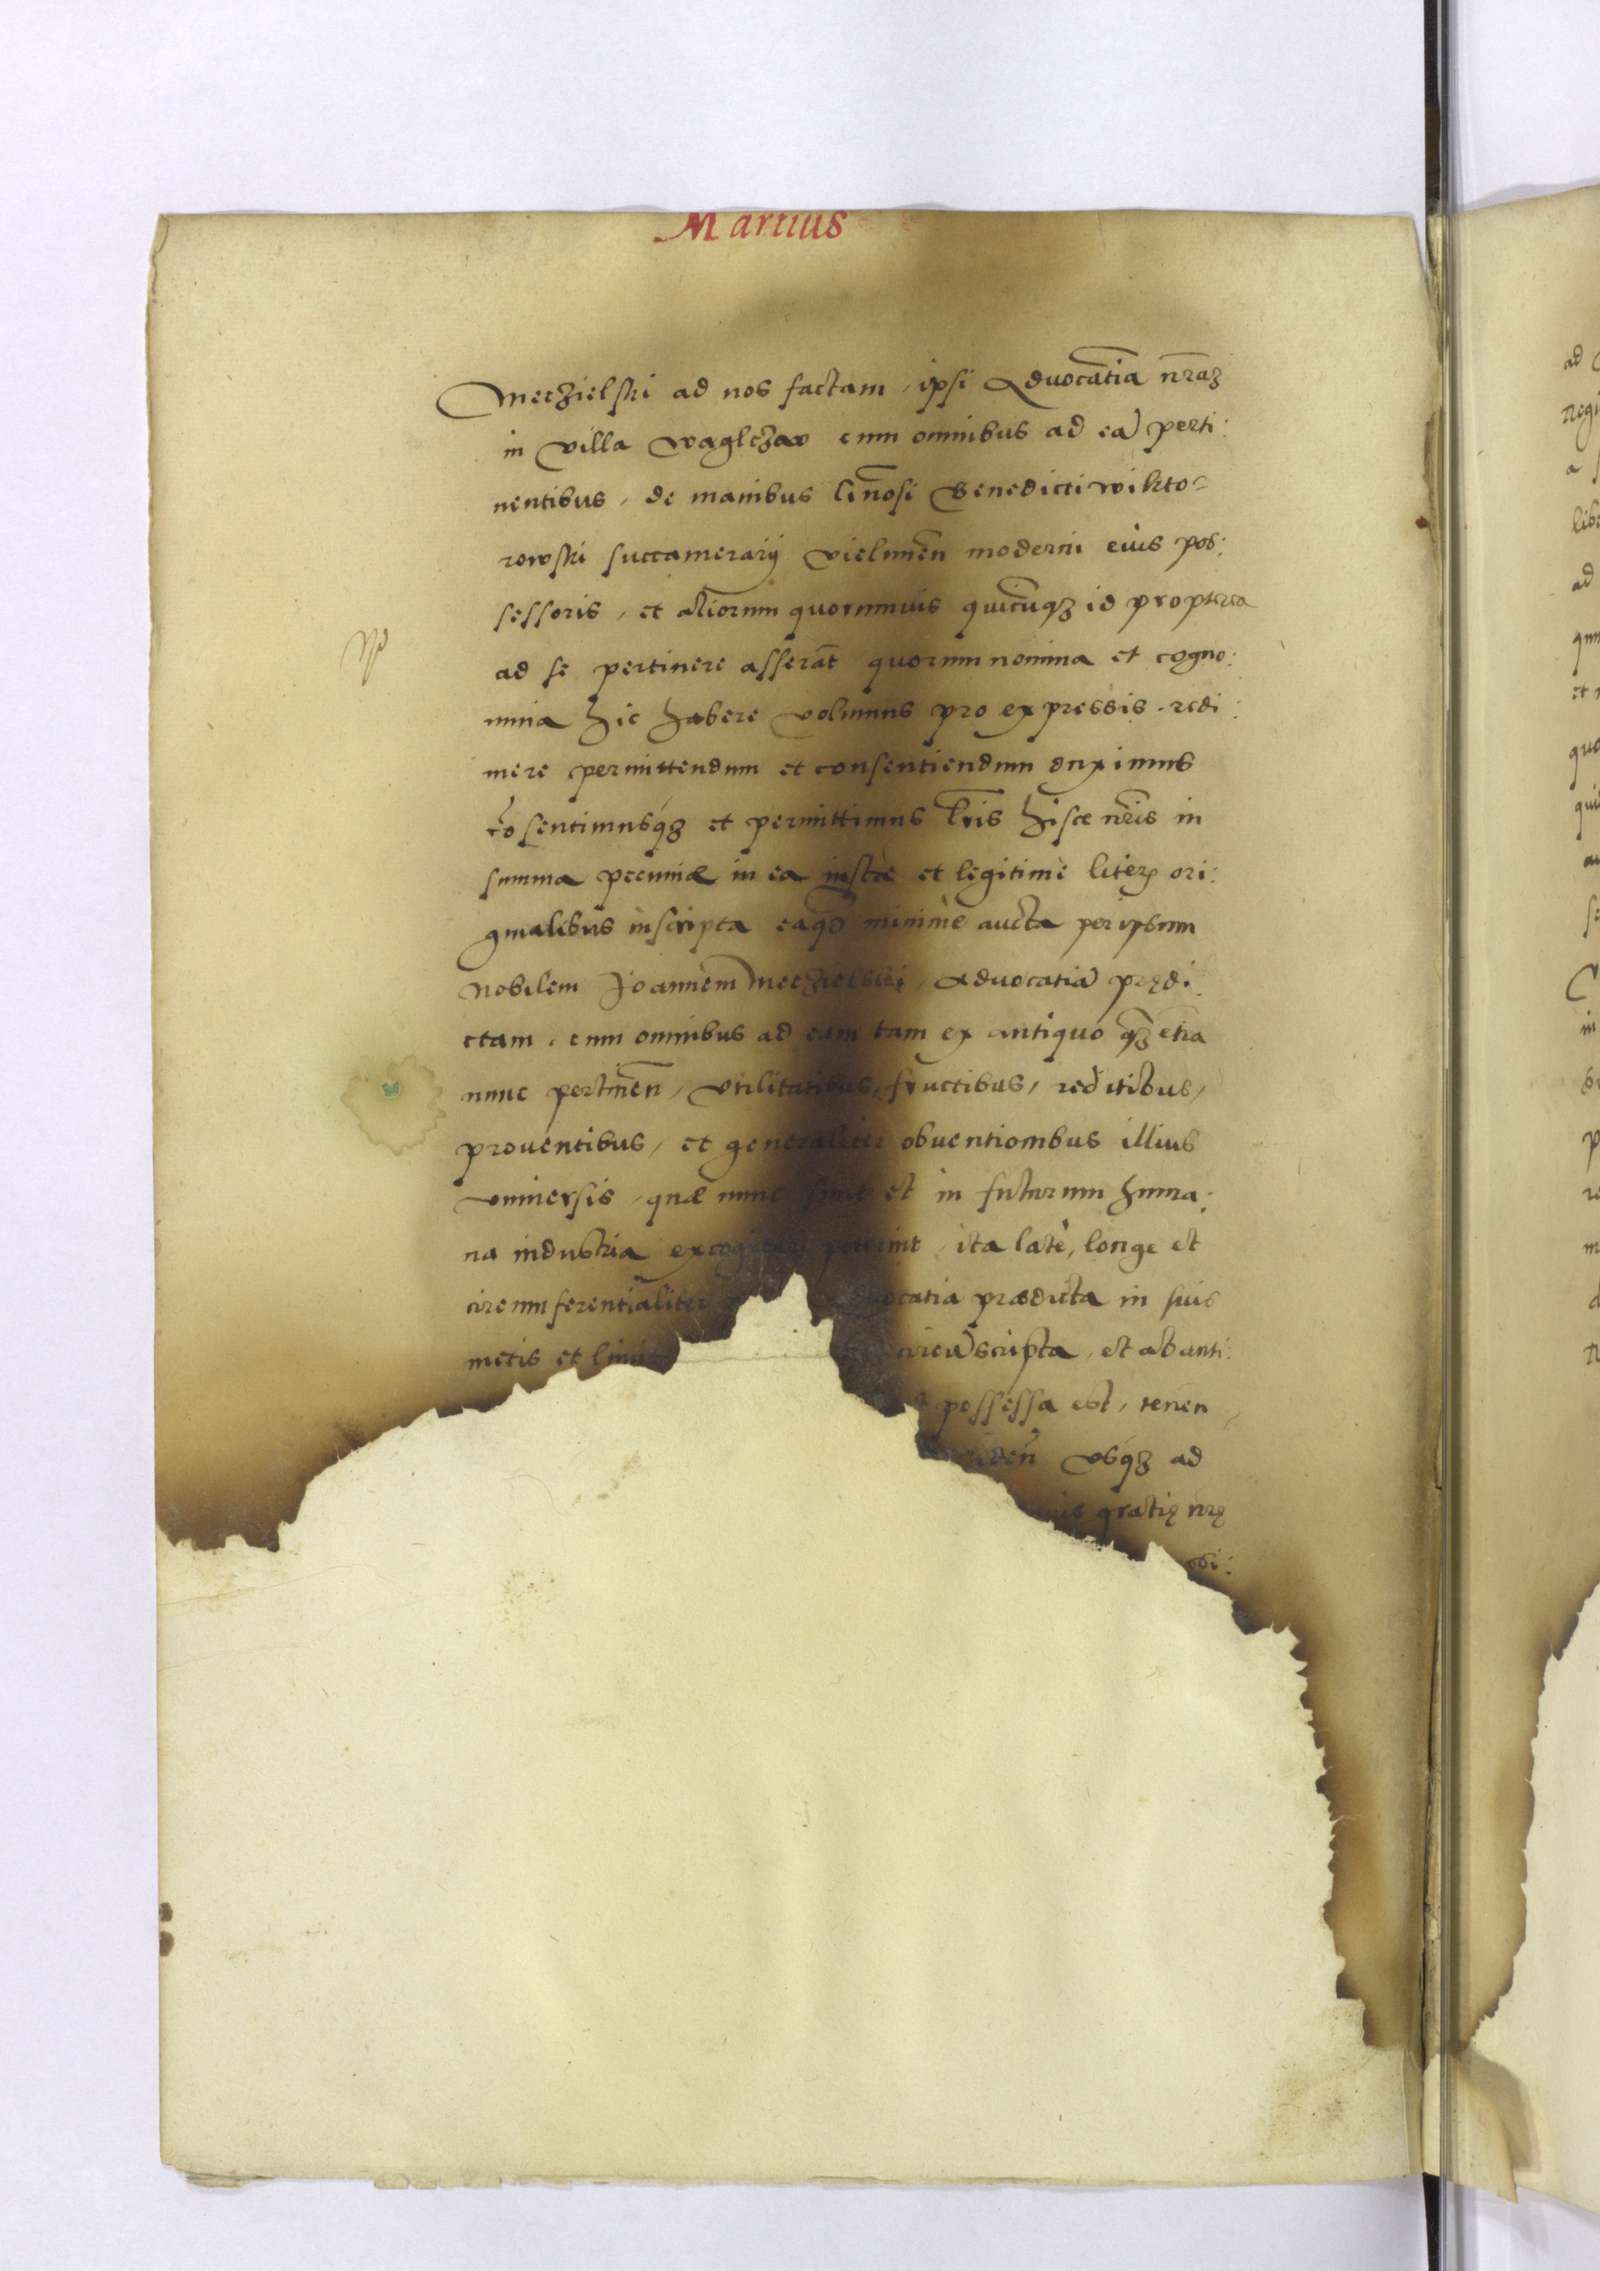 Martius
Meczielski ad nos factam, ipsi Advocatia nraz
in villa Waglczaw cum omnibus ad ea perti:
nentibus, de manibus Gnosi Benedicti Wikto-
rowski succamerarij Vielunen moderni eius pos:
sessoris, et aliorum quorumvis quicunqz id propterea
ad se pertinere asserat quorum nomina et cogno:
mina hic habere volumus pro expressis, redi:
mere permittendum et consentiendum duximus
cosentimusqz et permittimus lris hisce nris in
summa pecuniæ in ea iuste et legitimè literis ori:
ginalibus inscripta eaqz minimè aucta per ipsum
nobilem Joannem Meczielski, Advocatia prędi:
ctam, cum omnibus ad eam tam ex antiquo qz etia
nunc pertinen, utilitatibus, fructibus, reditibus,
proventibus, et generaliter obventionibus illius
universis, quæ nunc sunt et in futurum huma:
na industria excogitari poterint, ita latè, longe et
circumferentialiter advocatia prædicta in suis
metis et limit circuscripta, et ab anti:
possessa est, tenen
usqz ad
gratię nrę